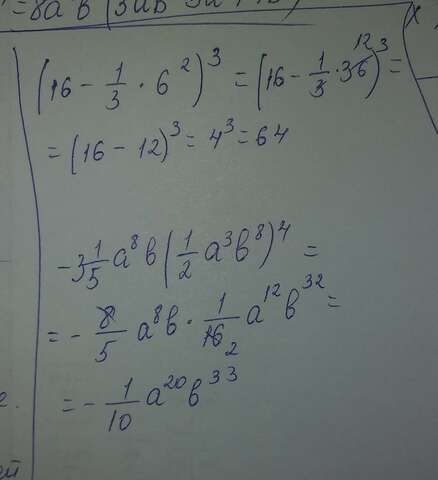 = 8a b (3ab
(16 - 1/3 · 6²)³ = (16 - 1/3 · 36 12)³ =
= (16 - 12)³ = 4³ = 64
-3 1/5 a⁸b (1/2 a³b⁸)⁴ =
= - 8/5 a⁸b · 1/16 2 a¹²b³² =
= - 1/10 a²⁰b³³